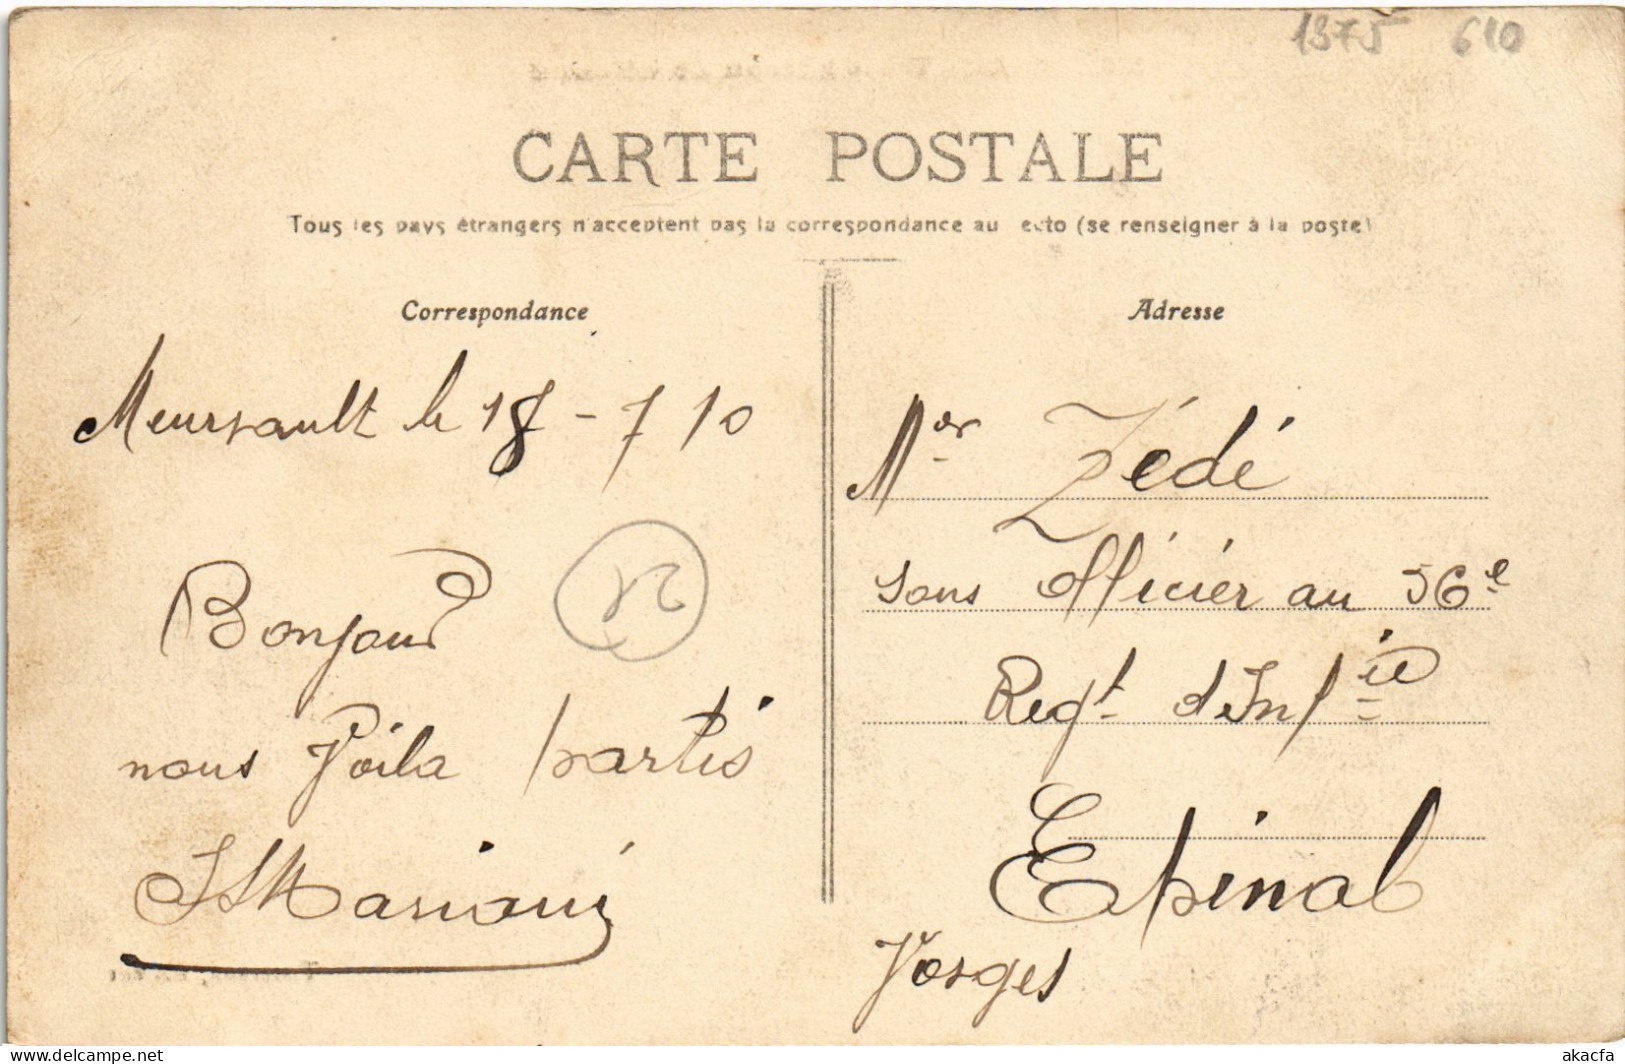 1375 610
CARTE POSTALE
Tous les pays étrangers n'acceptent pas la correspondance au ecto (se renseigner à la poste)
Correspondance
Meursault le 18 - 7 10
Bonjour
nous Voila partis
JMariani
Adresse
Mor Zédé
Sous Officier au 56e
Regt d'Infie
Epinal
Vosges
delcampe.net
akacfa